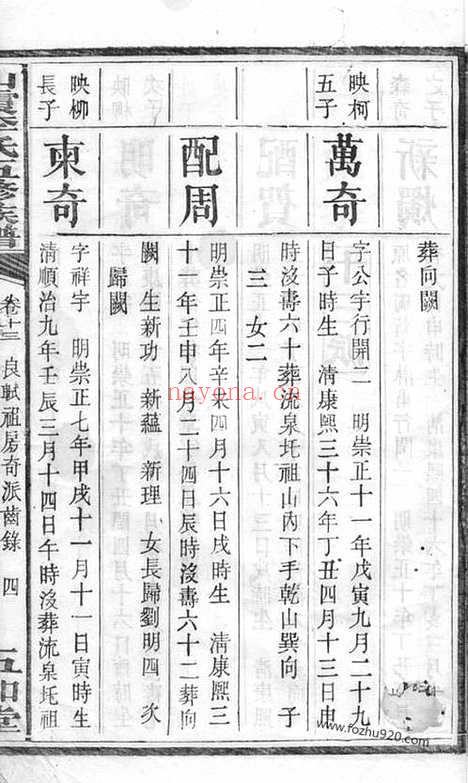 葬向闕
映柯
五子
萬奇
字公宇行開二　明崇正十一年戊寅九月二十九
日子時生　清康熙三十六年丁丑四月十三日申
時沒壽六十葬流泉圫祖山內下手乾山巽向　子
三　女二
配周
明崇正四年辛未四月十六日戌時生　清康熙三
十一年壬申八月二十四日辰時沒壽六十二葬向
闕　生新功　新蘊　新理　女長歸劉明四　次
歸闕
映柳
長子
柬奇
字祥宇　明崇正七年甲戌十一月十一日寅時生
清順治九年壬辰三月十四日午時沒葬流泉圫祖
氏五修族譜
卷十三
良賦祖房奇派齒錄
四
五知堂
nayona.cn
www.fozhu920.com